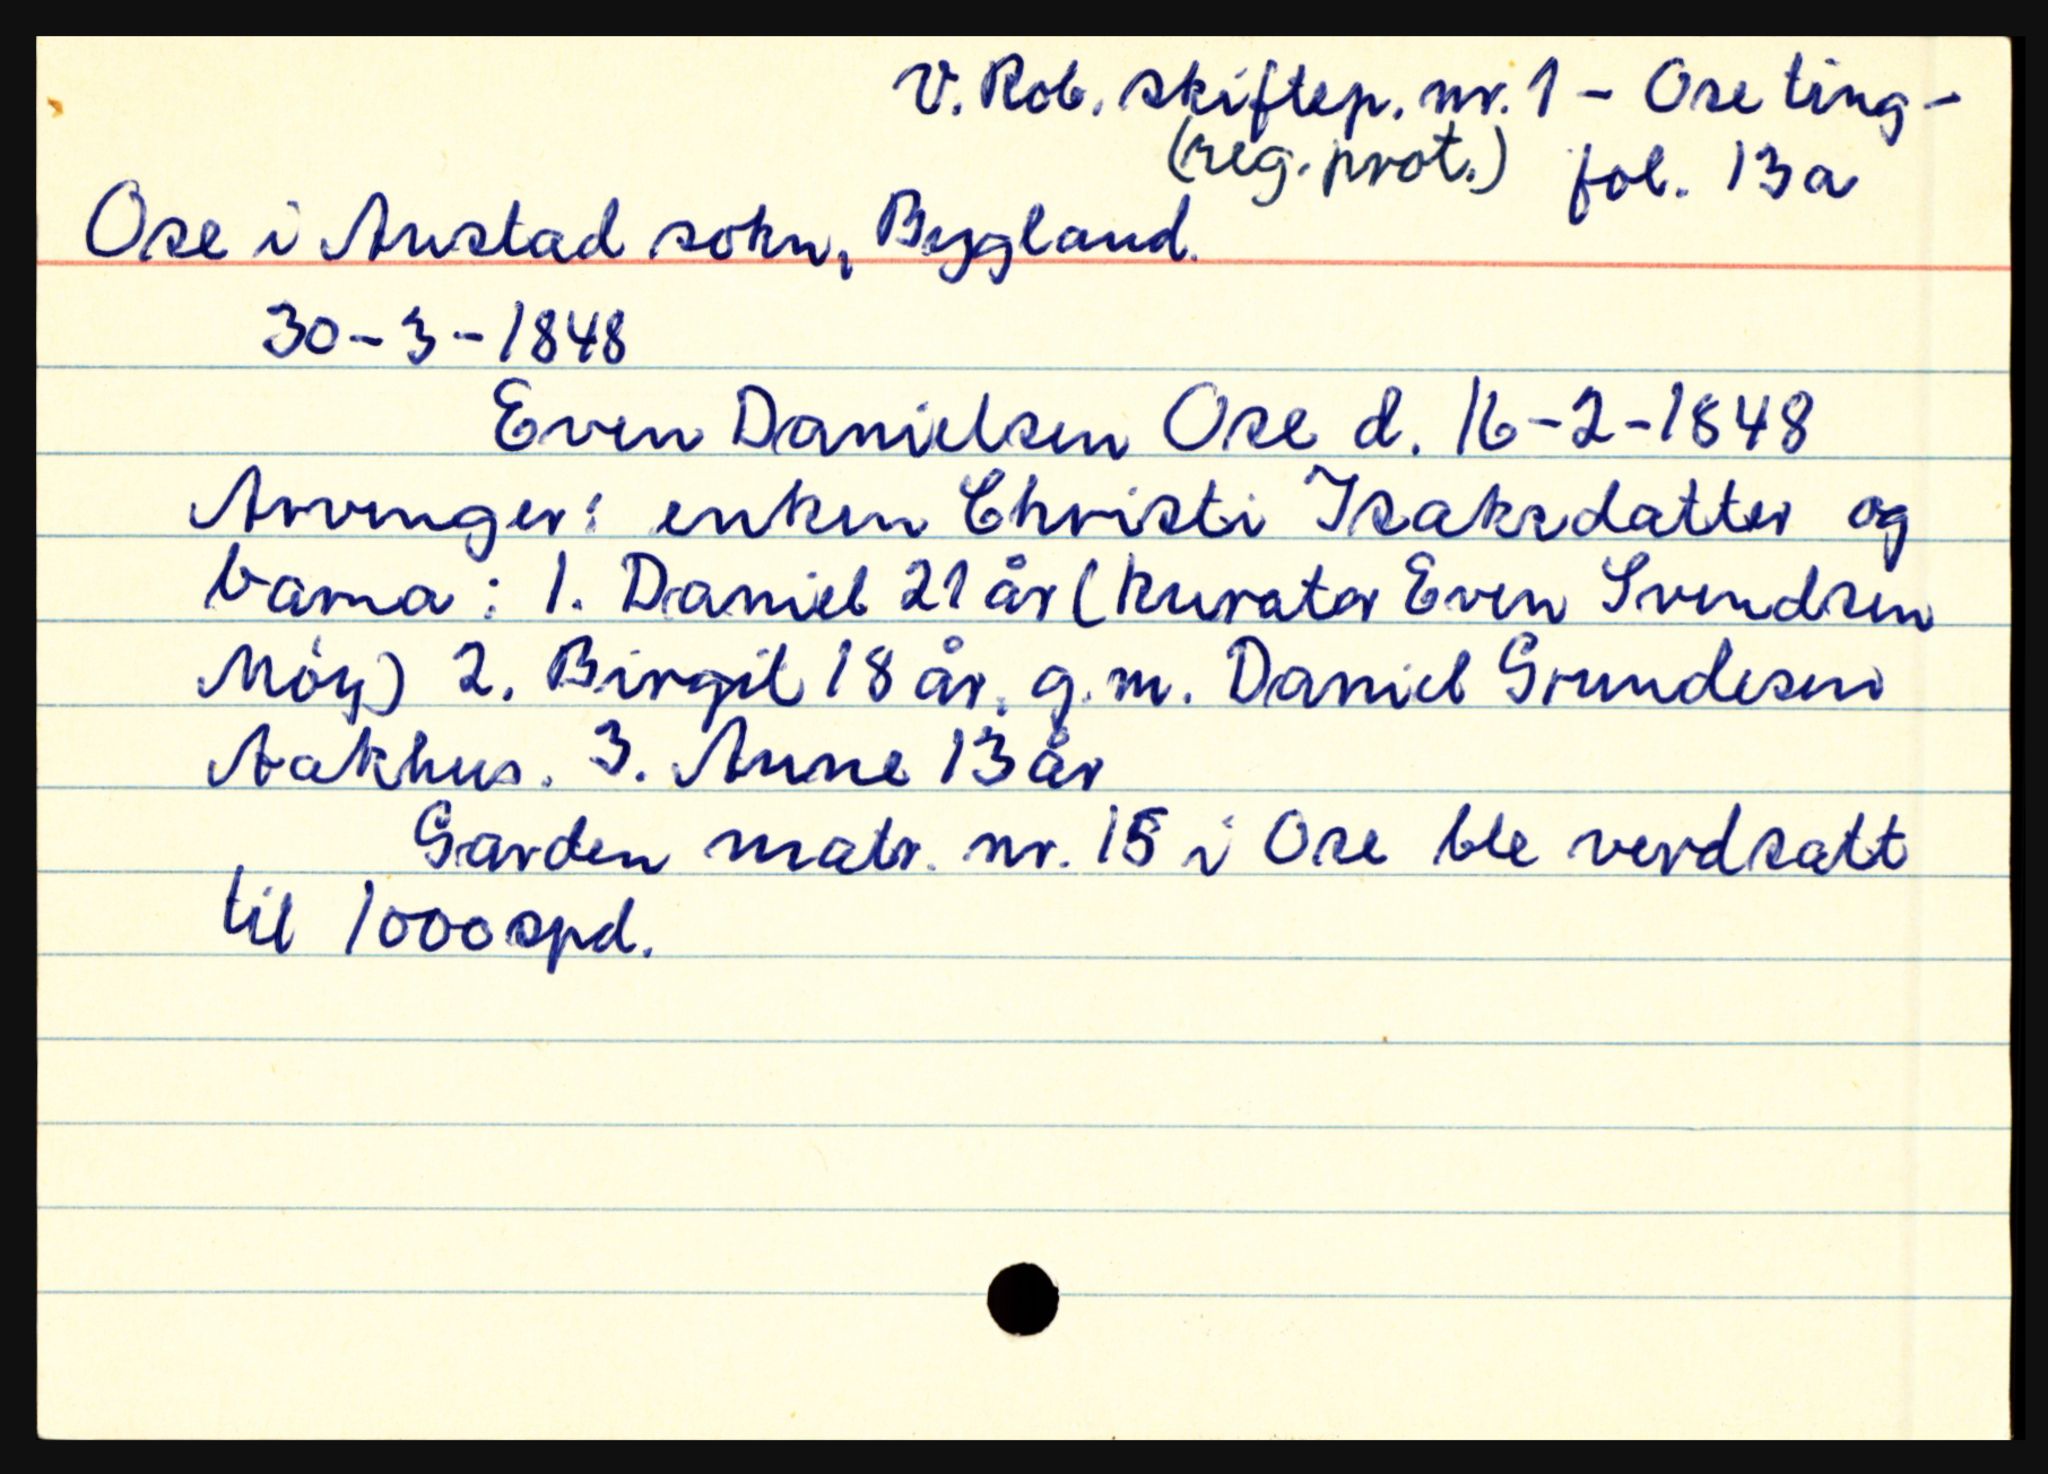 V. Rob. skiftep. nr. 1 - Ose ting -
(reg. prot.) fol. 13a
Ose i Austad sokn, Bygland.
30-3-1848
Even Danielsen Ose d. 16-2-1848
Arvinger: enken Christi Isaksdatter og
barna: 1. Daniel 21 år (kurator Even Svendsen
Möy) 2. Birgit 18 år. g.m. Daniel Grundesen
Aakhus. 3. Anne 13 år
Garden matr. nr. 15 i Ose ble verdsatt
til 1000 spd.